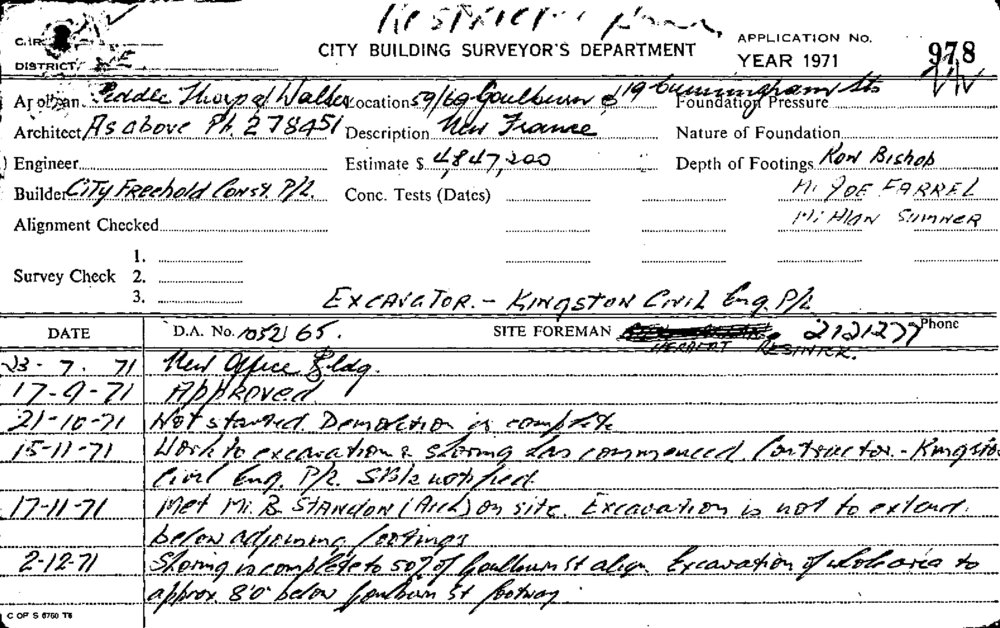 CITY BUILDING SURVEYOR'S DEPARTMENT
APPLICATION No.
YEAR 1971
978
DISTRICT
Peddle Thorp & Walker Location 59/69 Goulburn & 19 Cunningham Sts Foundation Pressure
Architect As above Ph. 278451 Description New France Nature of Foundation
Engineer Estimate $ 4,847,200 Depth of Footings Ron Bishop
Builder City Freehold Const P/L. Conc. Tests (Dates) Mr JOE FARREL
Alignment Checked Mr Alan Sumner
1.
Survey Check 2.
3.
EXCAVATOR. - KINGSTON CIVIL Eng. P/L
DATE D.A. No. 1052/65. SITE FOREMAN 2121277 Phone
HERBERT RESINICK.
23-7.71 New Office Bldg.
17-9-71 APPROVED
21-10-71 Not started. Demolition is complete
15-11-71 Work to excavation & shoring has commenced. Contractor. - Kingston
Civil Eng. P/L. notified.
17-11-71 Met Mr. B. STANDON (Arch) on site. Excavation is not to extend
below adjoining footings
2-12-71 Shoring is complete to 50% of Goulburn St align. Excavation of whole area to
approx. 8'0" below Goulburn St footway.
C OF S 6760 T8